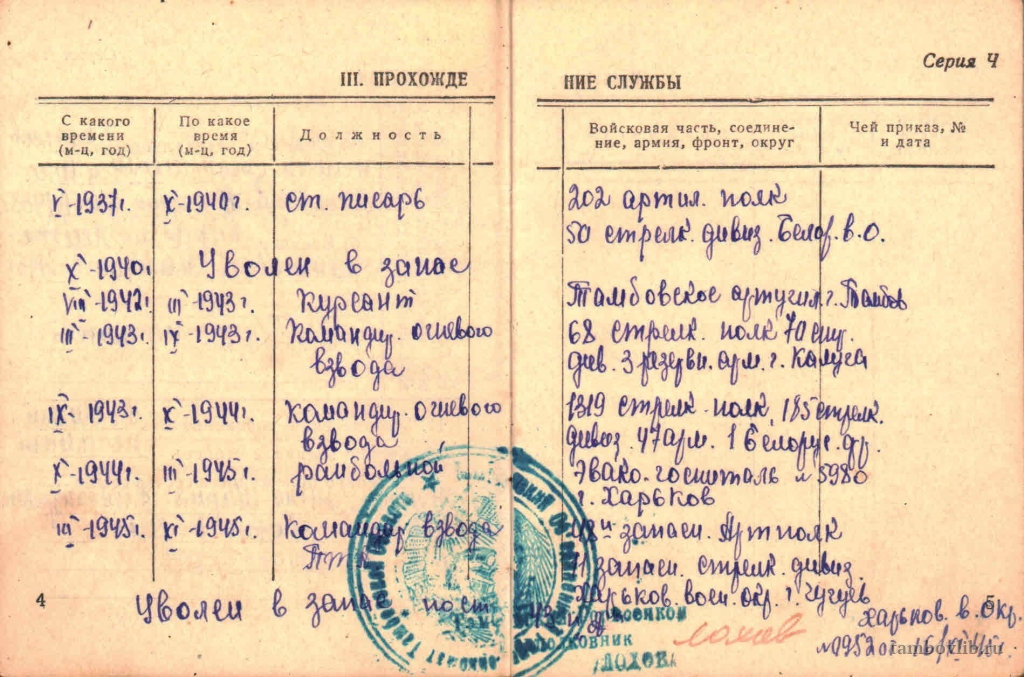 Серия Ч
III. ПРОХОЖДЕ
НИЕ СЛУЖБЫ
С какого времени (м-ц, год)
По какое время (м-ц, год)
Должность
Войсковая часть, соедине-
ние, армия, фронт, округ
Чей приказ, №
и дата
X-1940г. ст. писарь 202 артил. полк
50 стрелк. дивиз. Белор. в. о.
X-1940г. Уволен в запас
VIII-1942г. III-1943г. Курсант Тамбовское артучил. г. Тамбов
III-1943г. IX-1943г. Командир. огневого 68 стрелк. полк
взвода див. 3 резерви. арм. г. Калуга
IX-1943г. X-1944г. командир. огневого 1319 стрелк. полк, 185 стрелк.
взвода дивиз. 47 арм. 1 Белорус. фр.
X-1944г. III-1945г. ранбольной Эвако-госпиталь № 5980
г. Харьков
III-1945г. XI-1945г. Командир взвода запасн. Артполк
запасн. стрелк. дивиз
Уволен в запас по ст. 43 Харьков. воен. окр. г. Чугуев
4
5
Харьков. в. Окр.
ЛОХОВ
Лохов
tambovlib.ru